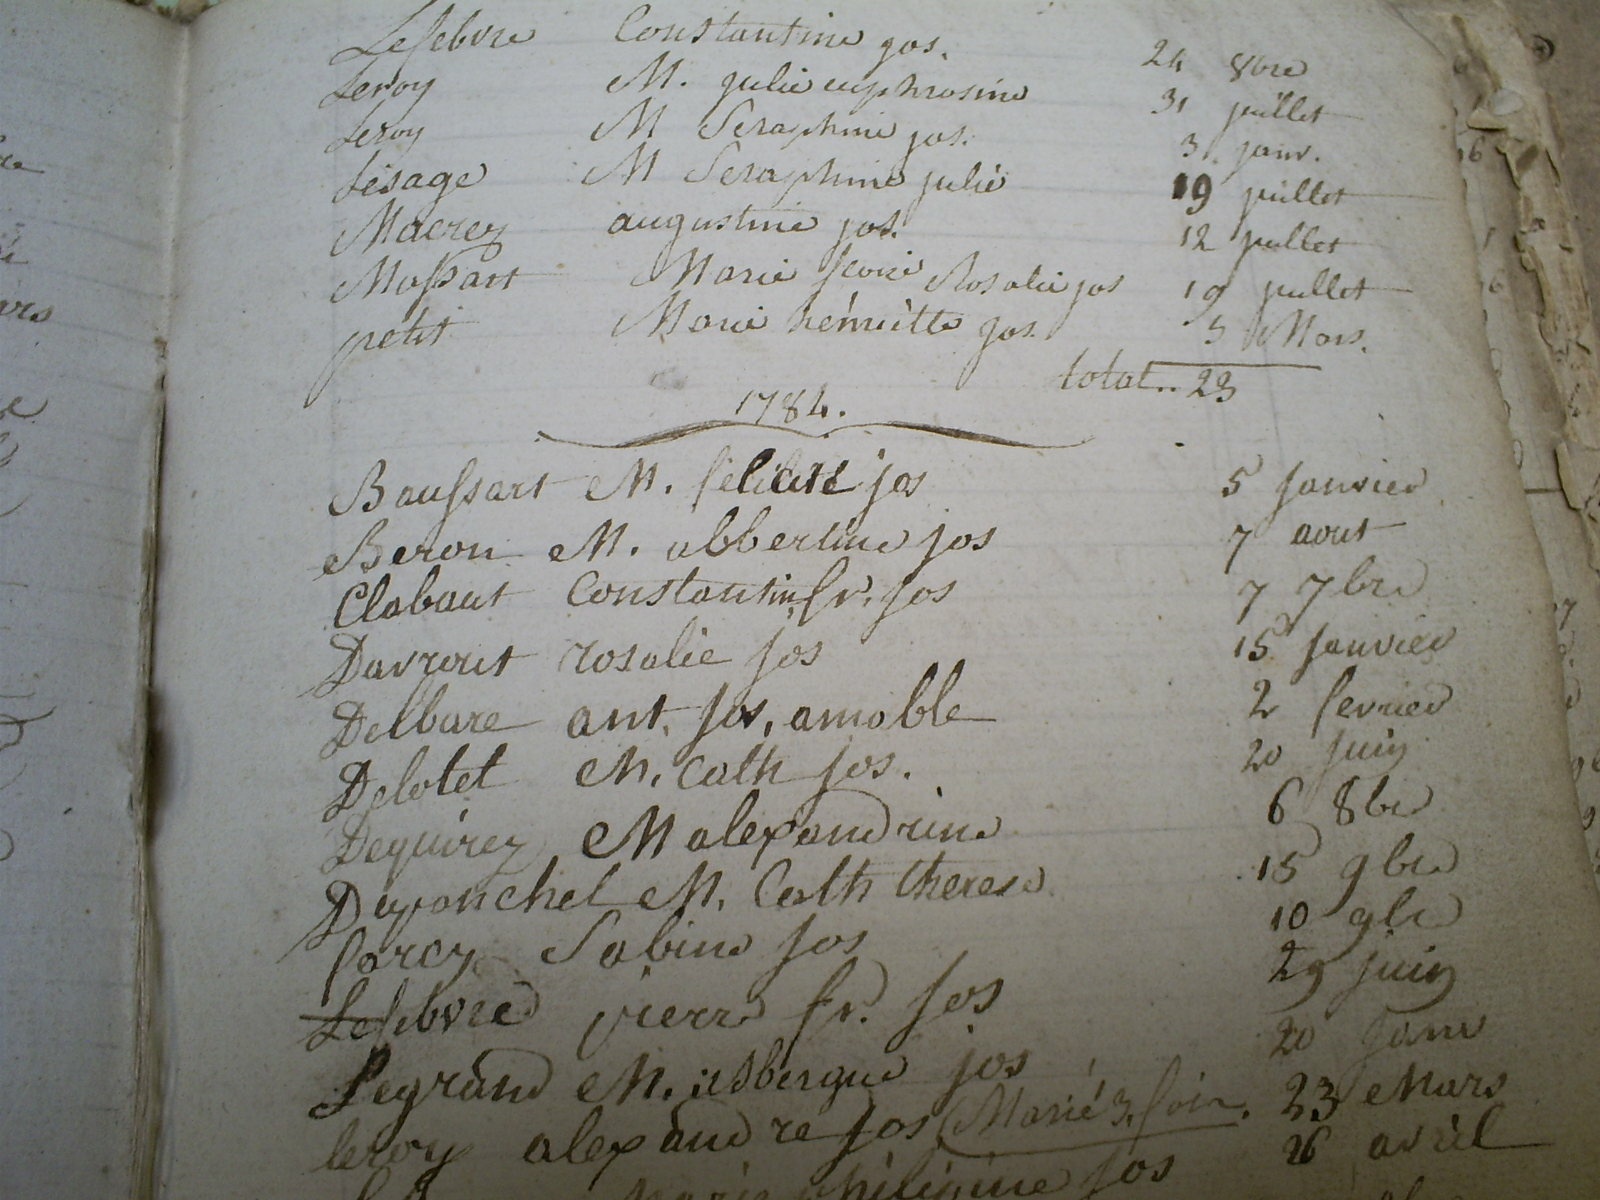 Lefebvre Constantine jos. 24 8bre
Leroy M. julie euphrosine 31 juillet
Leroy M Seraphine jos. 3. janv.
Lesage M Seraphine julie 19 juillet
Macrez augustine jos. 12 juillet
Massart Marie Rosalie jos 19 juillet
petit Marie henriette jos. 3 Mars.
total.. 23
1784.
Baussart M. félicité jos 5 janvier
Beron M. albertine jos 7 aout
Clabaut Constantin fr. jos 7 7bre
Davrout rosalie jos 15 janvier
Delbare ant. jos. amable 2 fevrier
Delotet M. Cath jos. 20 juin
Dequirez M alexandrine 6 8bre
Duponchel M. Cath therese 15 9bre
farcy Sabine jos 10 9bre
Lefebvre pierre fr. jos 29 juin
Legrand M. isbergue jos 20 janv
leroy alexandre jos (Marié 3. fois. 23 Mars
philipine jos 26 avril